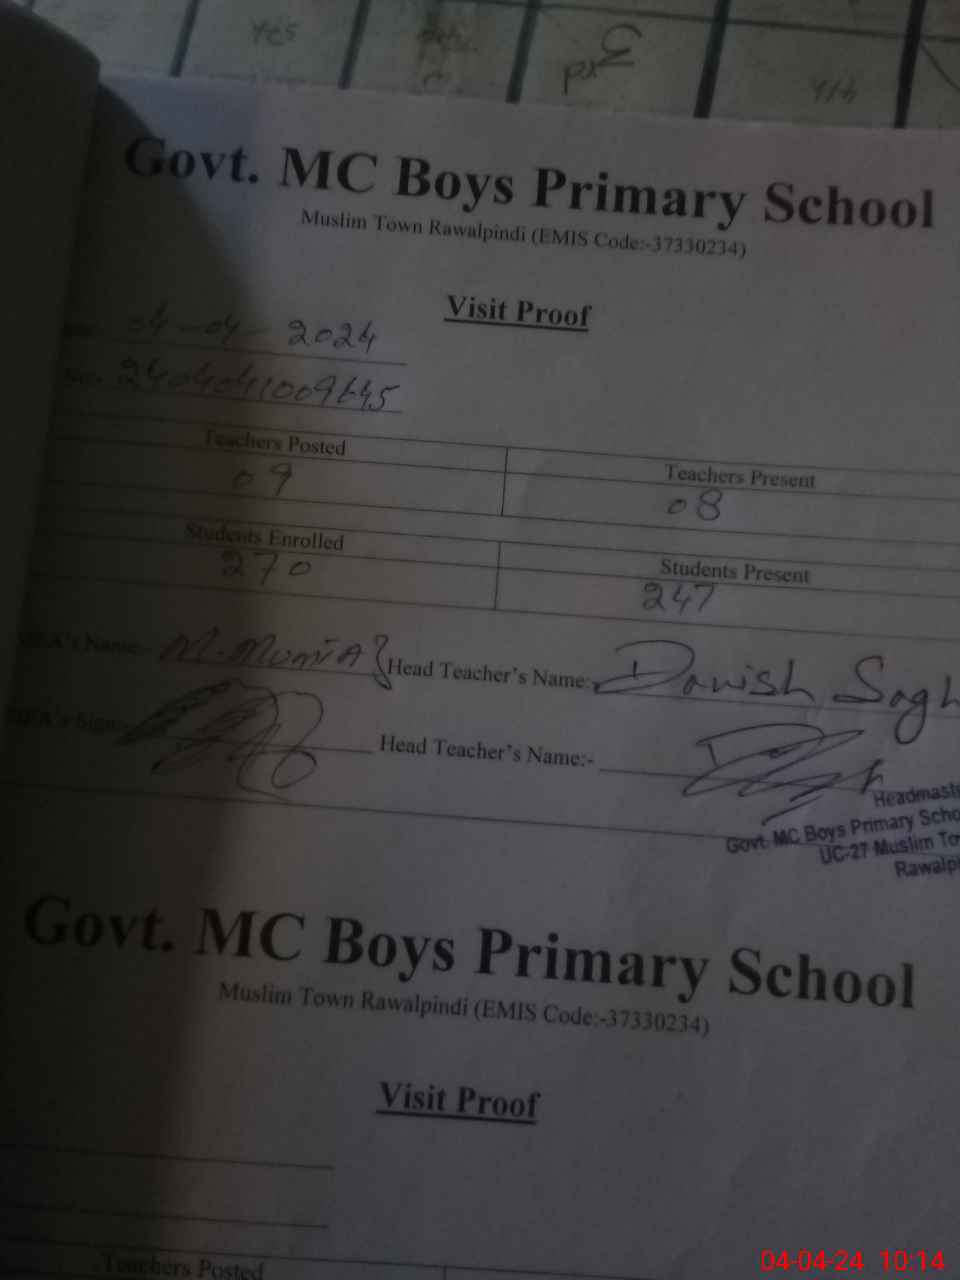 Yes
Govt. MC Boys Primary School
Muslim Town Rawalpindi (EMIS Code:-37330234)
Visit Proof
04-04-2024
Teachers Posted
Teachers Present
09
08
Students Enrolled
Students Present
270
247
Name:- M. Head Teacher's Name:- Danish
Head Teacher's Name:-
Headmast
Govt. MC Boys Primary Scho
UC-27 Muslim To
Rawalpi
Govt. MC Boys Primary School
Muslim Town Rawalpindi (EMIS Code:-37330234)
Visit Proof
Teachers Posted
04-04-24 10:14